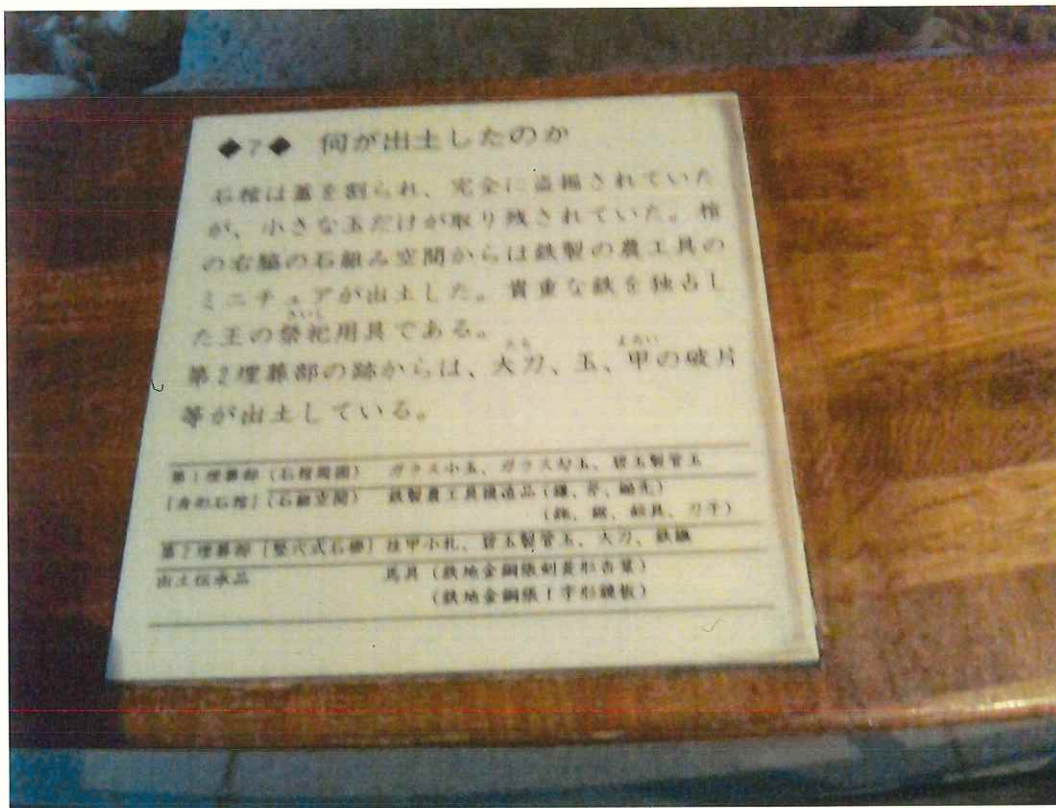 ◆7◆ 何が出土したのか
石棺は蓋を割られ、完全に盗掘されていた
が、小さな玉だけが取り残されていた。棺
の右脇の石組み空間からは鉄製の農工具の
ミニチュアが出土した。貴重な鉄を独占し
さいし
た王の祭祀用具である。
たち よろい
第2埋葬部の跡からは、大刀、玉、甲の破片
等が出土している。
第1埋葬部(石棺周囲) ガラス小玉、ガラス勾玉、碧玉製管玉
[舟形石棺](石組空間) 鉄製農工具模造品(鎌、斧、鋤先)
(鉇、鋸、刀子)
第2埋葬部[竪穴式石槨] 挂甲小札、碧玉製管玉、大刀、鉄鏃
出土伝承品 馬具(鉄地金銅張剣菱形杏葉)
(鉄地金銅張f字形鏡板)